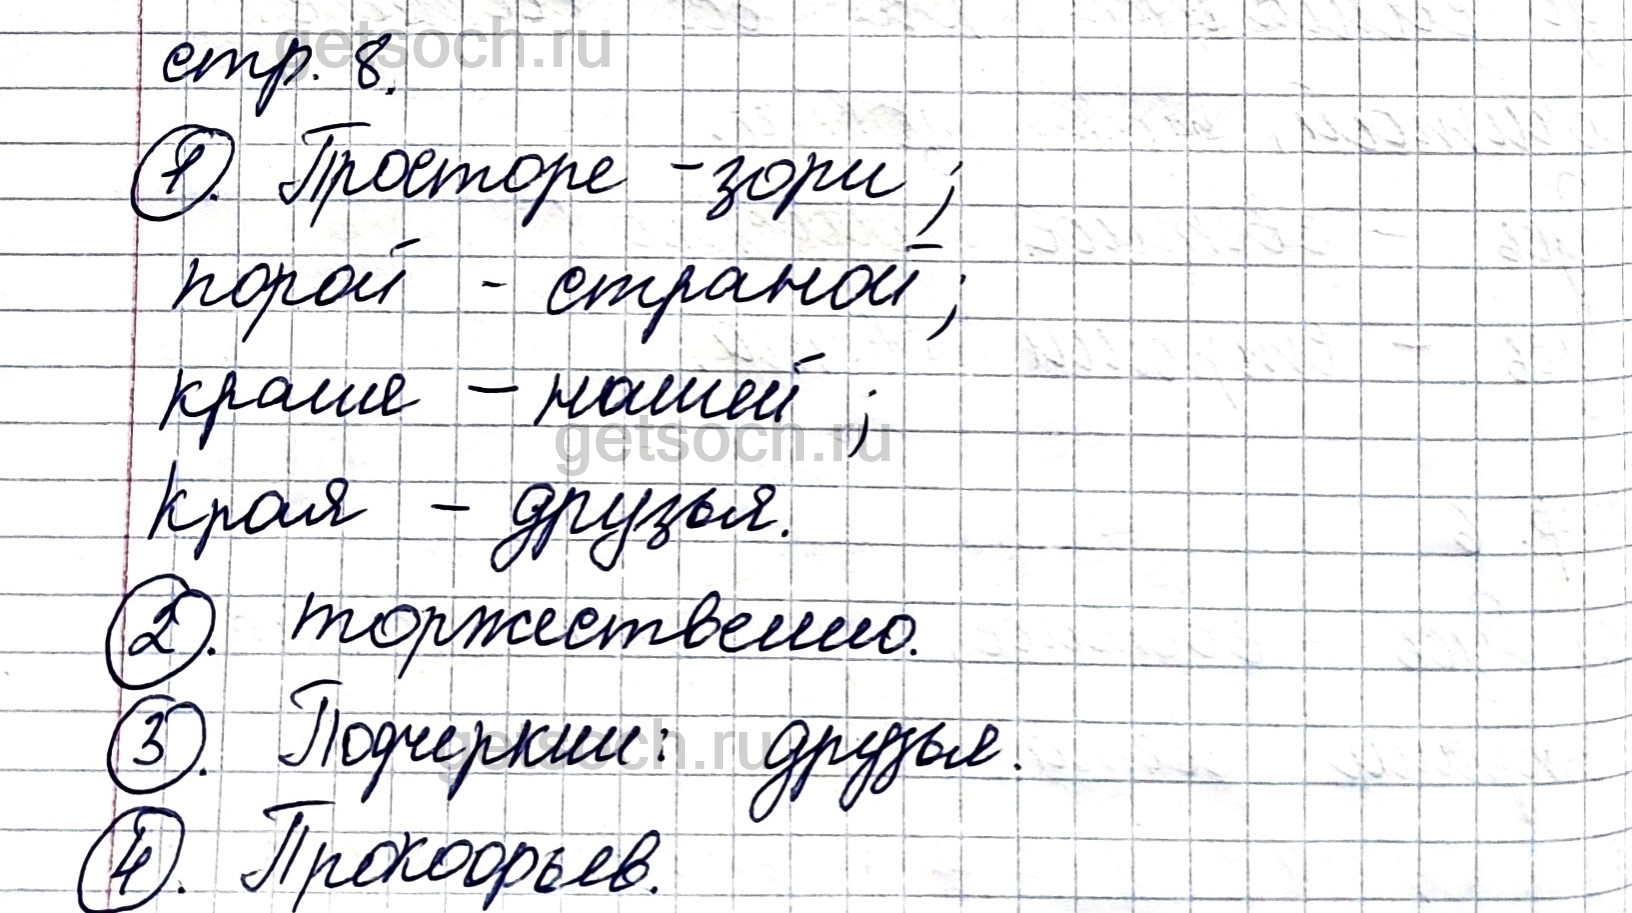 getsoch.ru
стр. 8.
1. Просторе - зори;
порой - страной;
краше - нашей;
getsoch.ru
края - друзья.
2. торжественно.
3. Подчеркни: друзья.
getsoch.ru
4. Прокофьев.